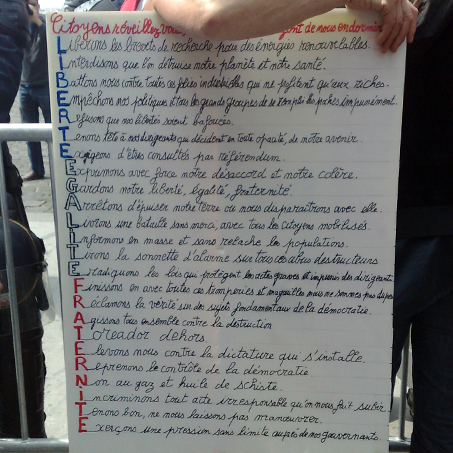 Citoyens réveillez vous de nous endormir
Libérons les brevets de recherche pour des énergies renouvelables.
Interdisons que l'on détruise notre planète et notre santé.
Battons nous contre toutes ces folies industrielles qui ne profitent qu'aux riches.
Empêchons nos politiques et tous les grands groupes de se remplir les poches impunément.
Refusons que nos libertés soient bafouées.
Tenons tête à nos dirigeants qui décident en toute opacité, de notre avenir.
Exigeons d'êtres consultés par référendum.
Exprimons avec force notre désaccord et notre colère.
Gardons notre liberté, égalité, fraternité
Arrêtons d'épuiser notre terre ou nous disparaîtrons avec elle.
Livrons une bataille sans merci, avec tous les citoyens mobilisés.
Informons en masse et sans relache les populations.
Tirons la sonnette d'alarme sur tous ces abus destructeurs
Eradiquons les lois qui protègent les actes graves et impunis des dirigeants
Finissons en avec toutes ces tromperies et magouilles nous ne sommes pas dupes
Réclamons la vérité sur des sujets fondamentaux de la démocratie.
Agissons tous ensemble contre la destruction
Toreador dehors
Elevons nous contre la dictature qui s'installe.
Reprenons le contrôle de la démocratie
Non au gaz et huile de schiste.
Incriminons tout acte irresponsable qu'on nous fait subir.
Tenons bon, ne nous laissons pas manœuvrer.
Exerçons une pression sans limite auprès de nos gouvernants.